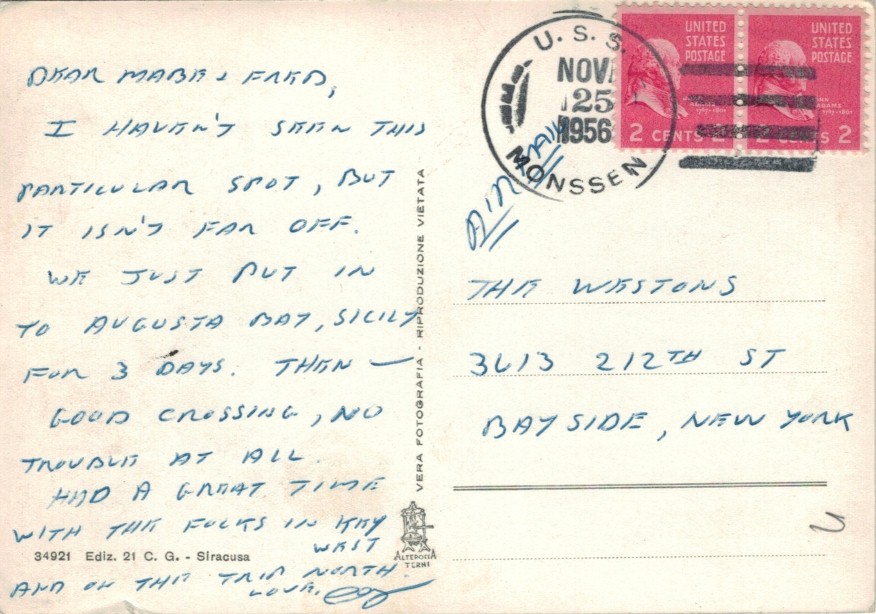 DEAR MABEL & FRED,
I HAVEN'T SEEN THIS
PARTICULAR SPOT, BUT
IT ISN'T FAR OFF.
WE JUST PUT IN
TO AUGUSTA BAY, SICILY
FOR 3 DAYS. THEN —
GOOD CROSSING, NO
TROUBLE AT ALL.
HAD A GREAT TIME
WITH THE FOLKS IN KEY
WEST
AND ON THE TRIP NORTH.
LOVE,
34921 Ediz. 21 C. G. - Siracusa
VERA FOTOGRAFIA - RIPRODUZIONE VIETATA
ALTEROCCA
TERNI
U. S. S.
NOV
25
1956
MONSSEN
UNITED
STATES
POSTAGE
ADAMS
2 CENTS 2
UNITED
STATES
POSTAGE
JOHN
ADAMS
1797-1801
2 CENTS 2
AIR MAIL
THE WESTONS
3613 212TH ST
BAYSIDE, NEW YORK